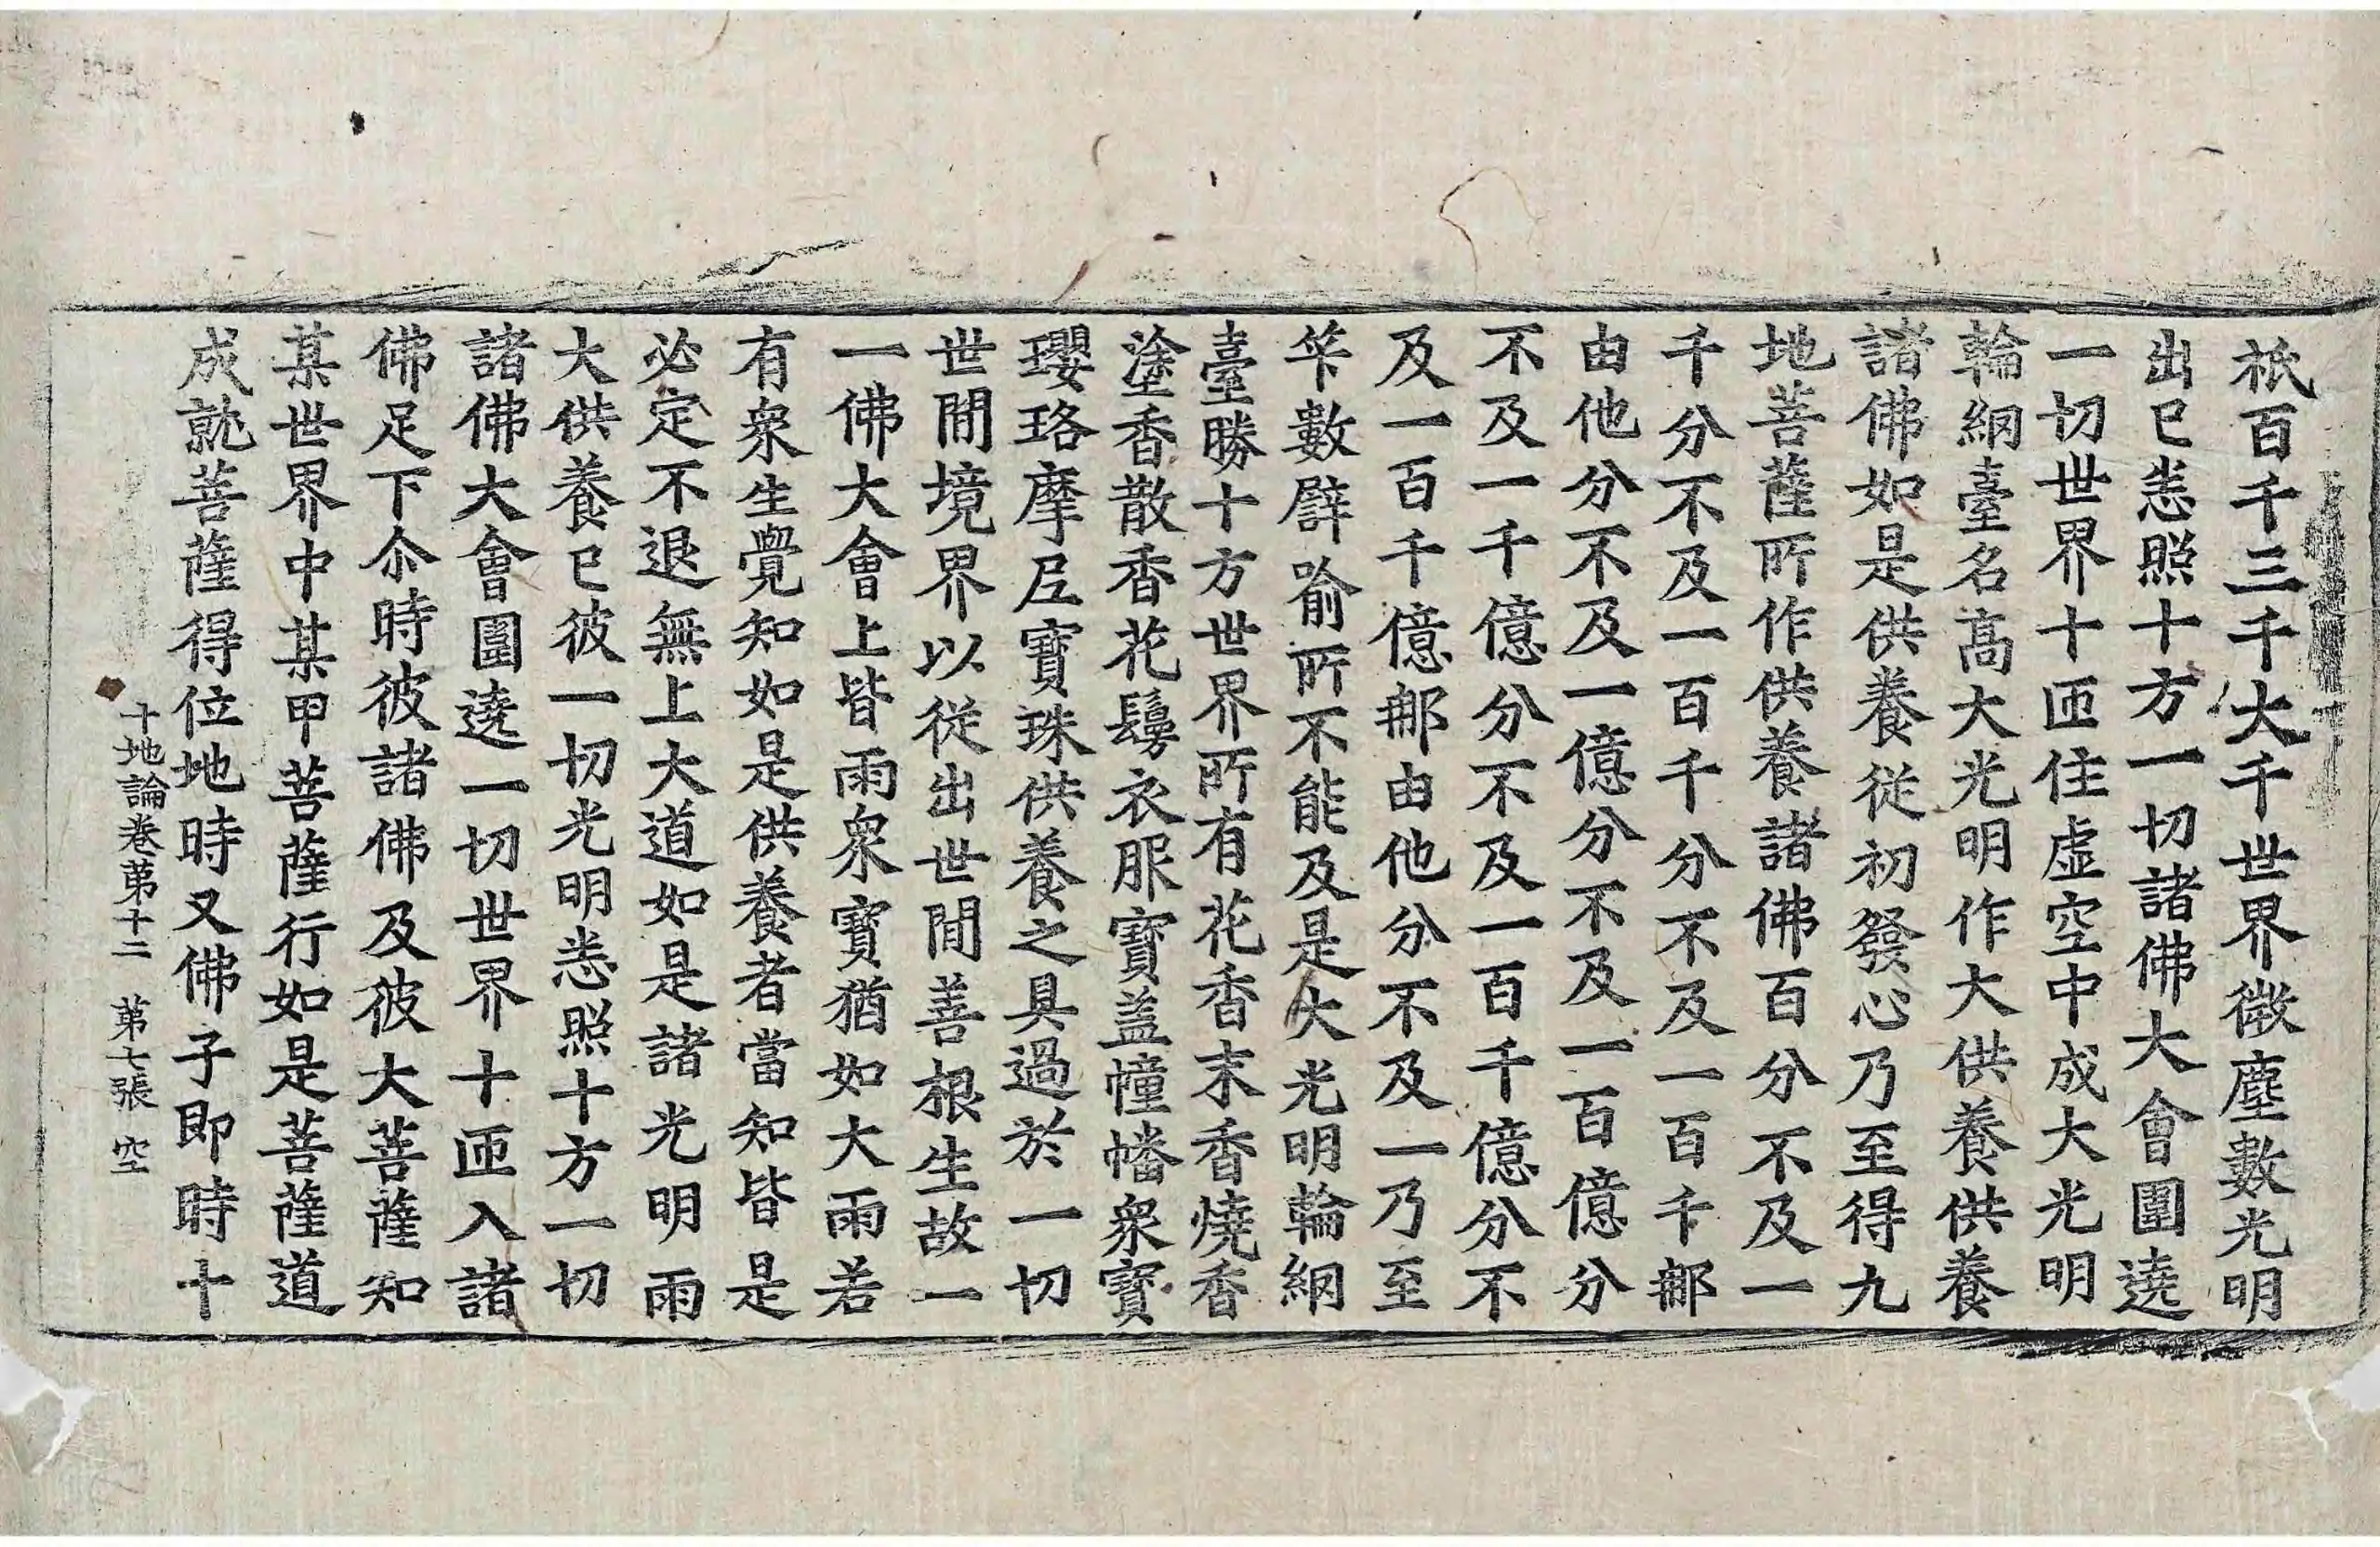 祇百千三千大千世界微塵數光明
出已悉照十方一切諸佛大會圍遶
一切世界十匝住虛空中成大光明
輪網臺名髙大光明作大供養供養
諸佛如是供養從初發心乃至得九
地菩薩所作供養諸佛百分不及一
千分不及一百千分不及一百千那
由他分不及一億分不及一百億分
不及一千億分不及一百千億分不
及一百千億那由他分不及一乃至
筭數譬喻所不能及是大光明輪網
臺勝十方世界所有花香末香燒香
塗香散香花鬘衣服寶盖幢幡衆寶
瓔珞摩尼寶珠供養之具過於一切
世間境界以從出世間善根生故一
一佛大會上皆雨衆寶猶如大雨若
有衆生覺知如是供養者當知皆是
必定不退無上大道如是諸光明雨
大供養已彼一切光明悉照十方一切
諸佛大會圍遶一切世界十匝入諸
佛足下尒時彼諸佛及彼大菩薩知
某世界中某甲菩薩行如是菩薩道
成就菩薩得位地時又佛子即時十
十地論卷第十二　第七張　空